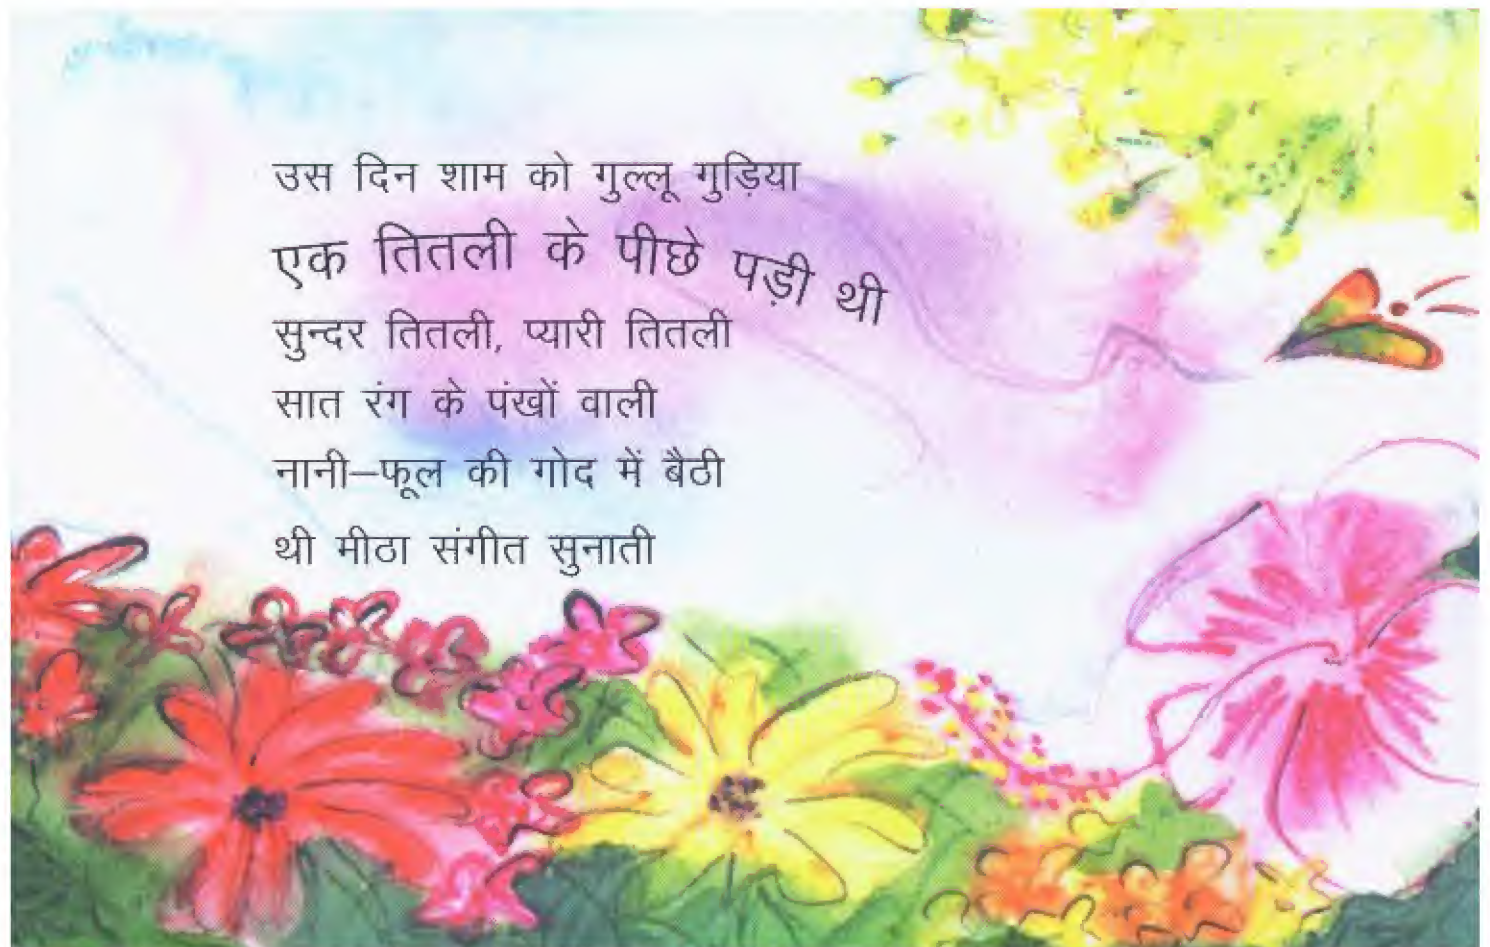 उस दिन शाम को गुल्लू गुड़िया
एक तितली के पीछे पड़ी थी
सुन्दर तितली, प्यारी तितली
सात रंग के पंखों वाली
नानी–फूल की गोद में बैठी
थी मीठा संगीत सुनाती